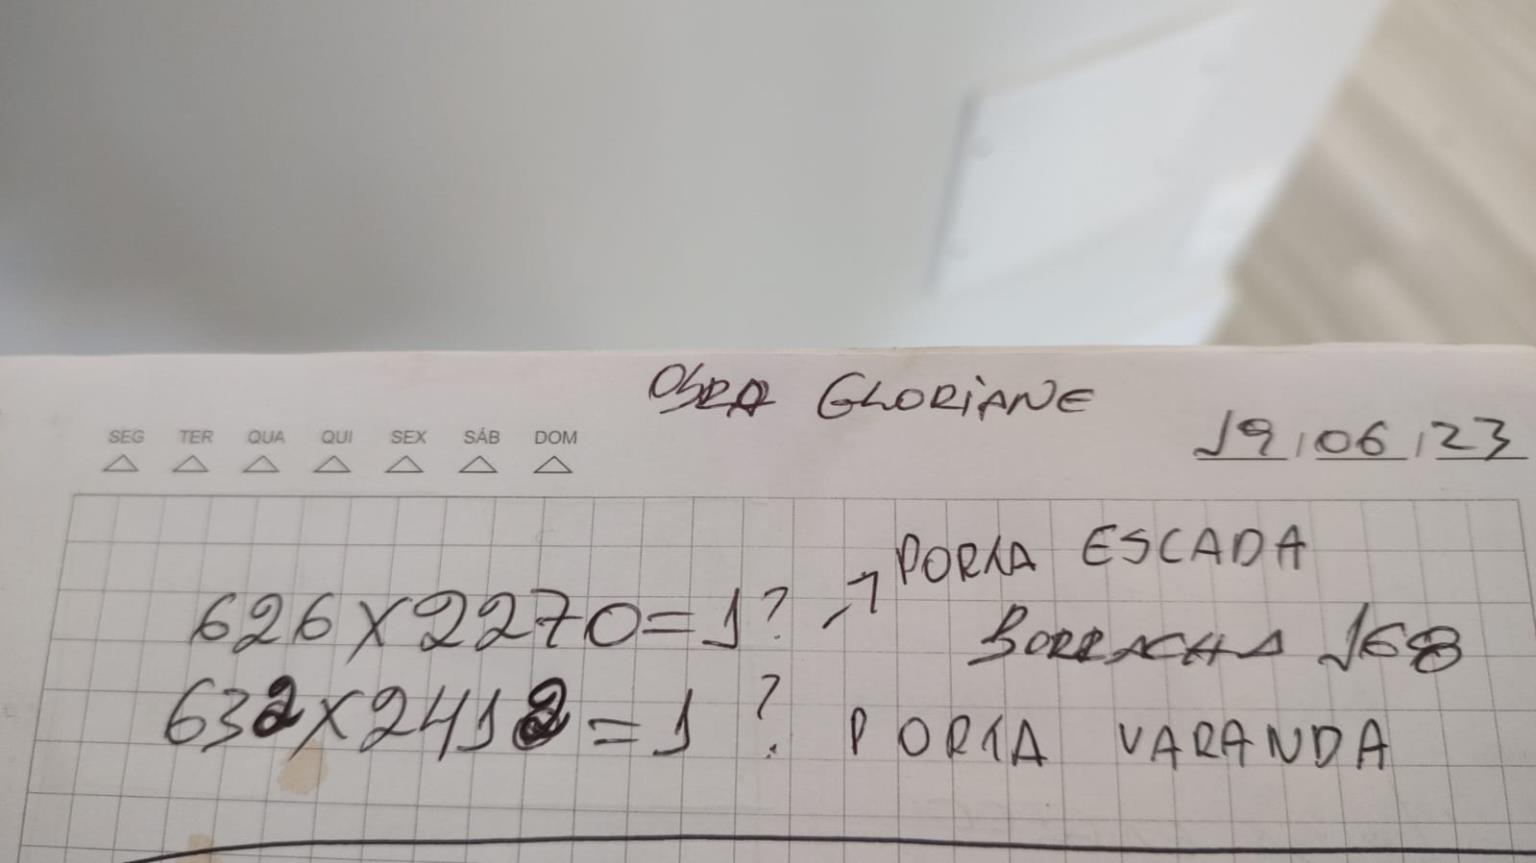 OBRA GLORIANE
SEG TER QUA QUI SEX SÁB DOM
19/06/23
PORTA ESCADA
626X2270=1? →
BORRACHA 168
632X2412=1 ? PORTA VARANDA